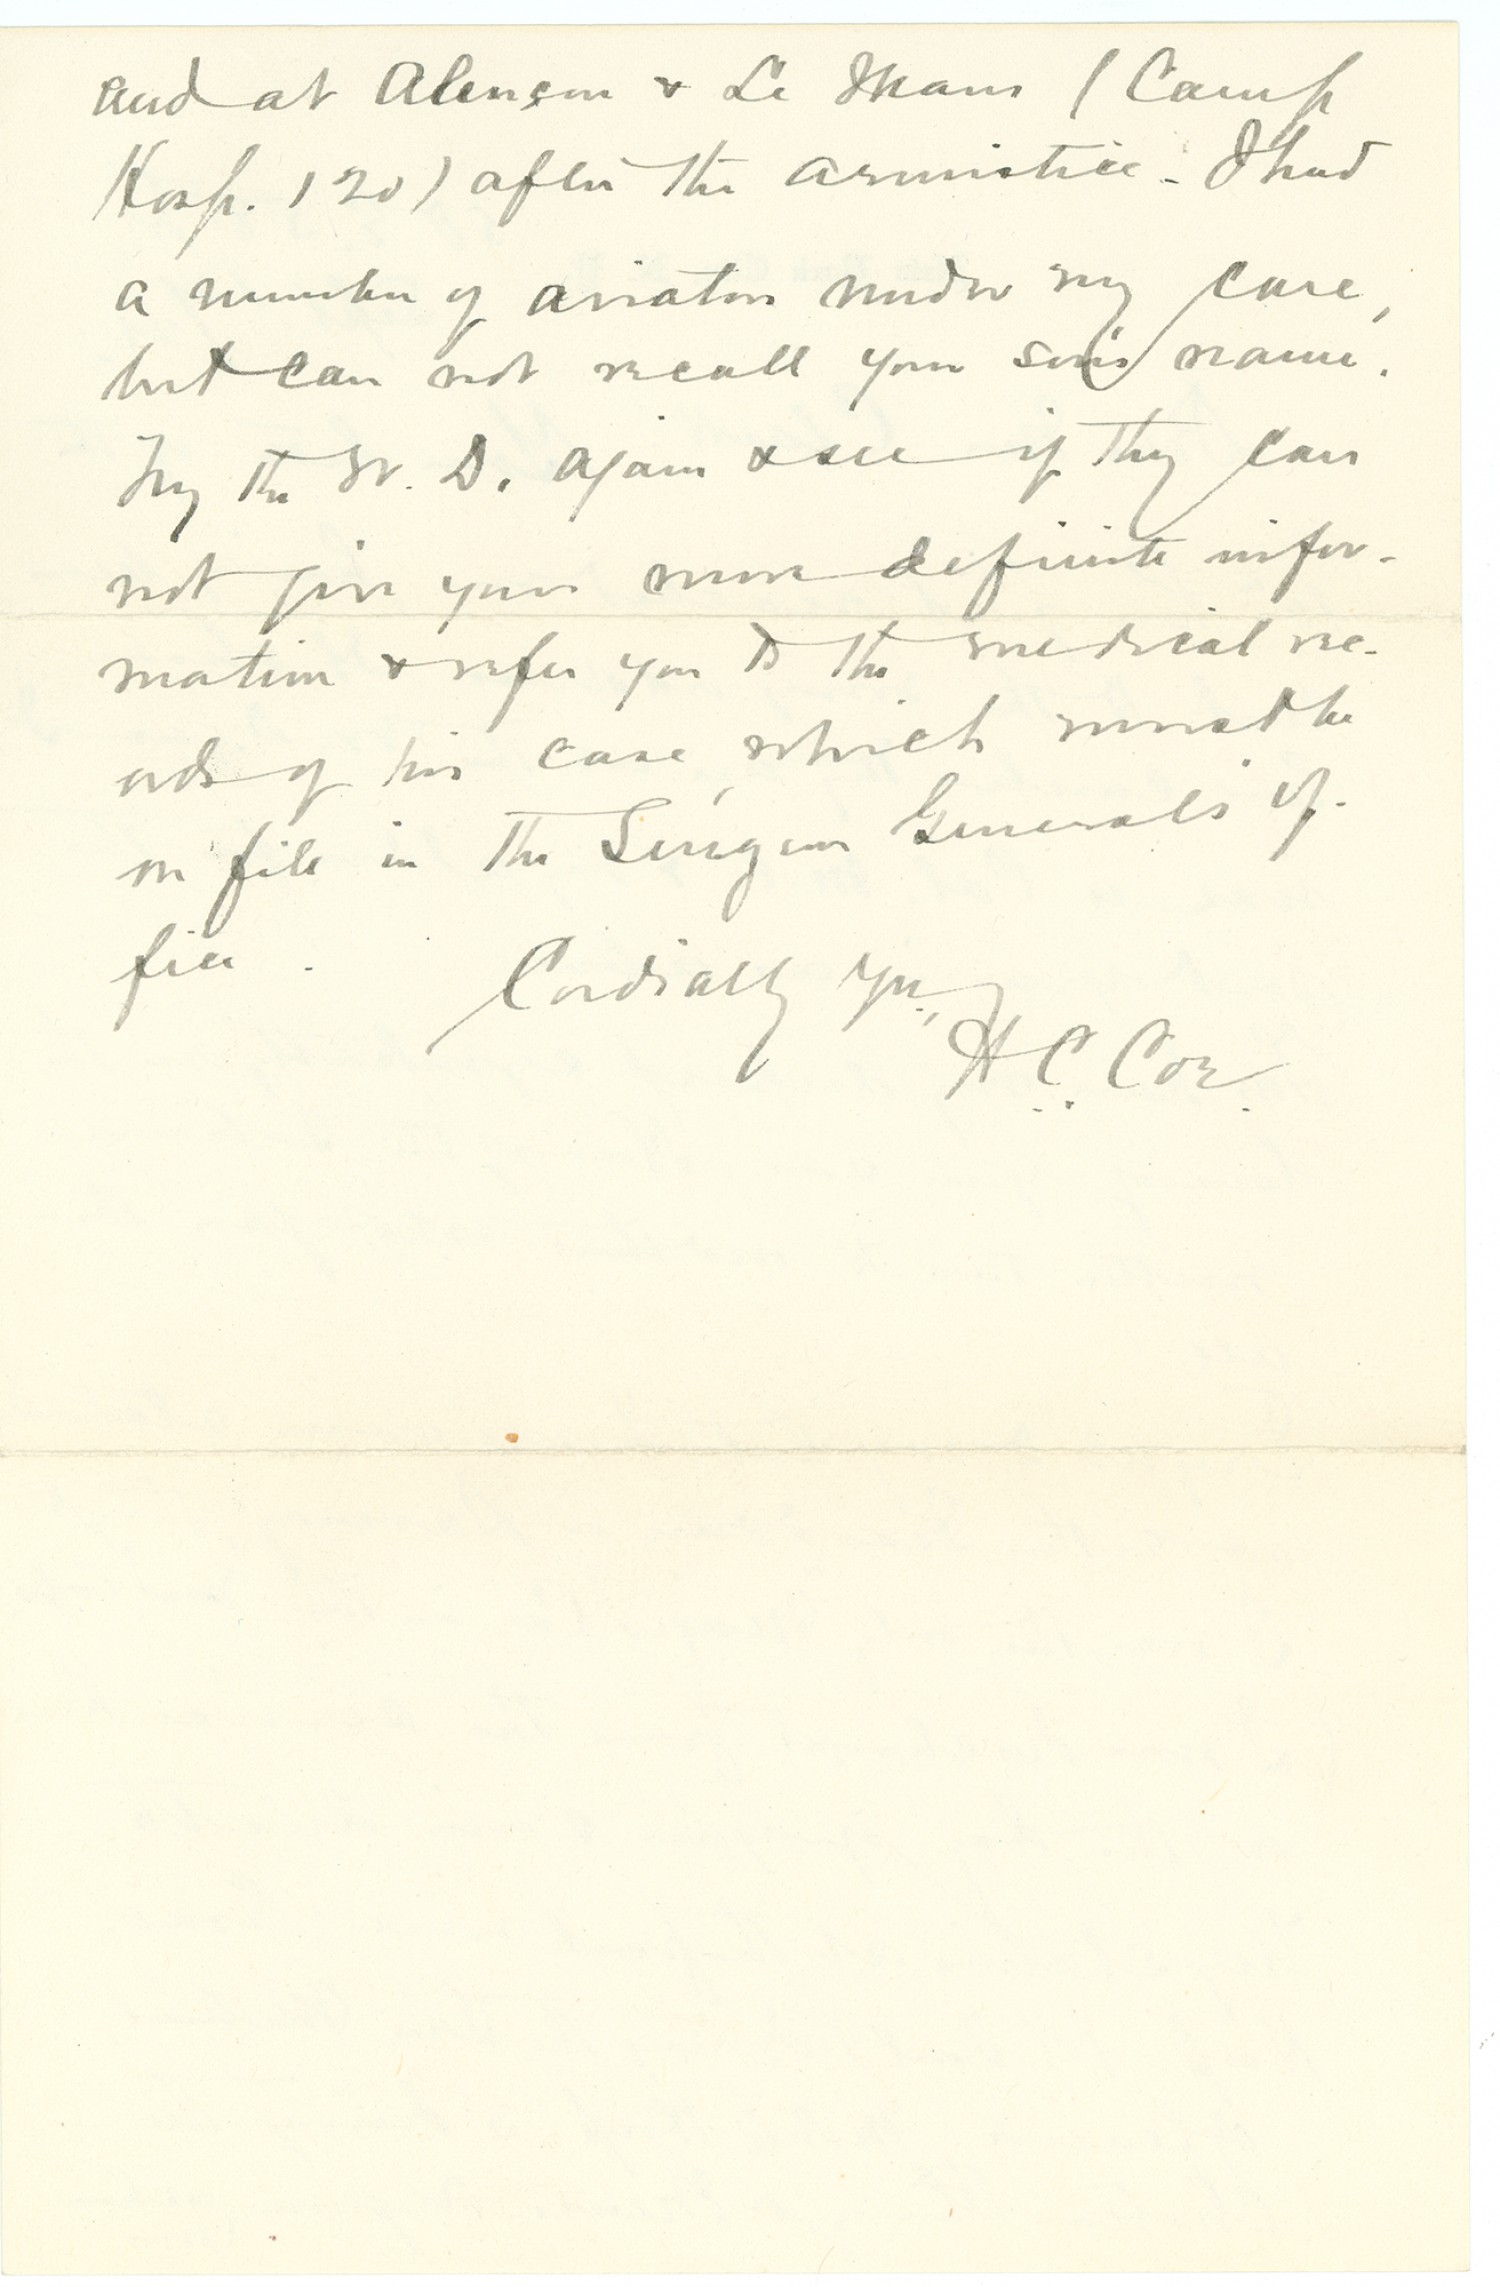 and at Alençon & Le Mans (Camp
Hosp. 120) after the armistice - I had
a number of aviators under my care,
but can not recall your son's name.
Try the W. D. again & see if they can
not give you more definite infor-
mation & refer you to the medical rec-
ords of his case, which must be
on file in the Surgeon General's of-
fice.
Cordially yrs.,
H. C. Coe.